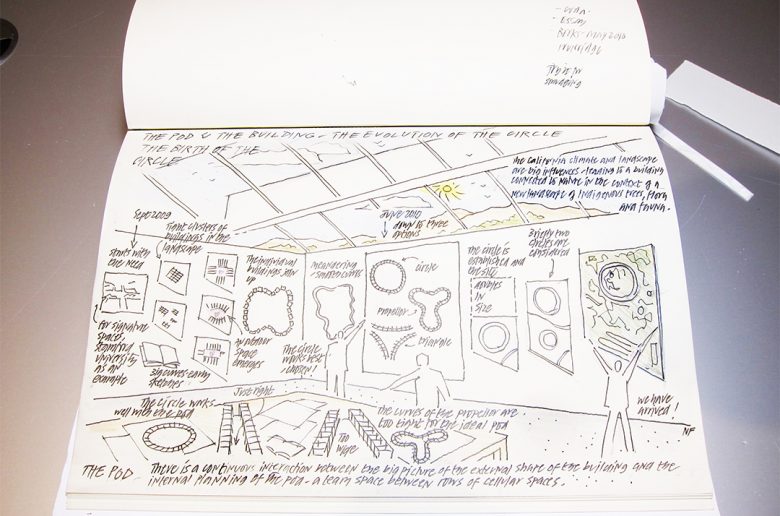 - essay
- BOOKS - MAY 2010
THE POD & THE BUILDING - THE EVOLUTION OF THE CIRCLE
THE BIRTH OF THE
CIRCLE
the California climate and landscape
are big influences - leading to a building
connected to nature in the context of a
new landscape of indigenous trees, flora
and fauna.
Sept 2009
starts with
the need
for signature
spaces,
Stanford
University
as an
example
tight clusters of
buildings in the
landscape
early
sketches!
an outdoor
space
emerges
The individual
buildings join
up
meandering
smoother curves
The circle
works best
chosen!
June 2010
down to three
options
circle
propellor
triangle
the circle is
established and
the site
adjusts
in
size
Briefly two
circles are
considered
we have
arrived!
NF
The circle works
well with the pod
Just right
too
large
the curves of the propellor are
too tight for the ideal pod
THE POD - There is a continuous interaction between the big picture of the external shape of the building and the
internal planning of the pod - a team space between rows of cellular spaces.